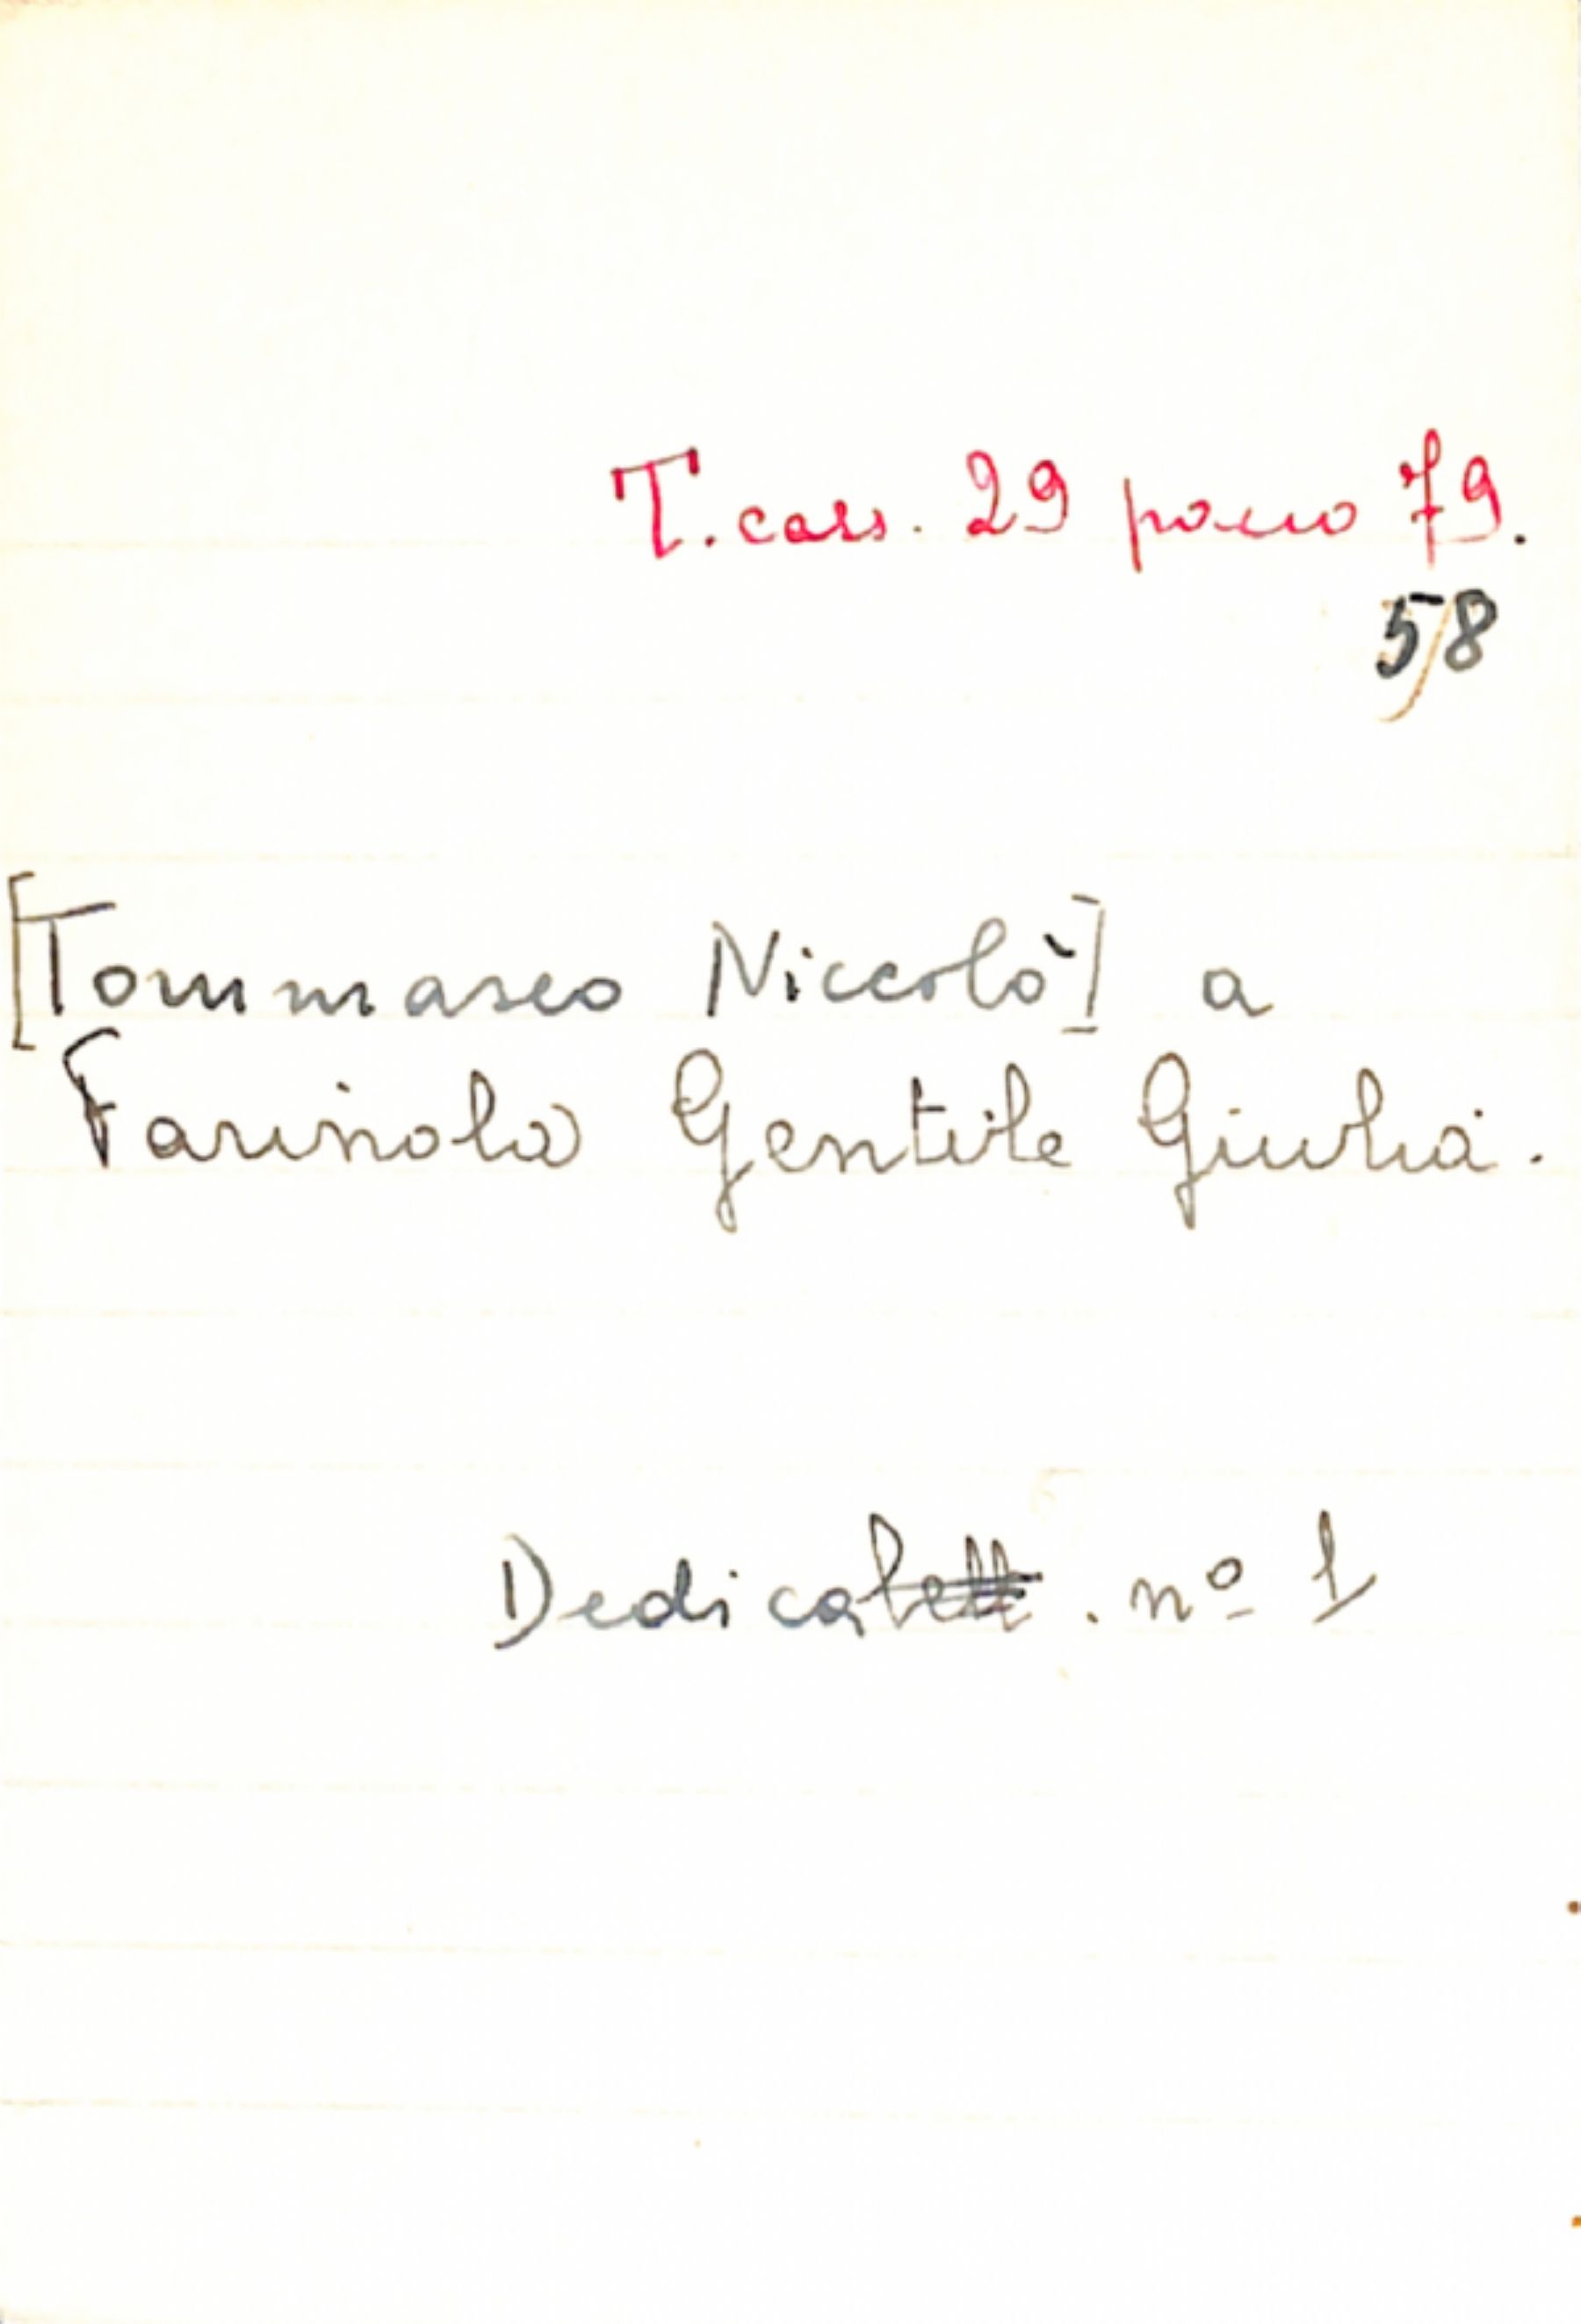 T. cass. 29 pacco 79.
58
[Tommaseo Niccolò] a
Farinola Gentile Giulia.
Dedica lett. nº 1